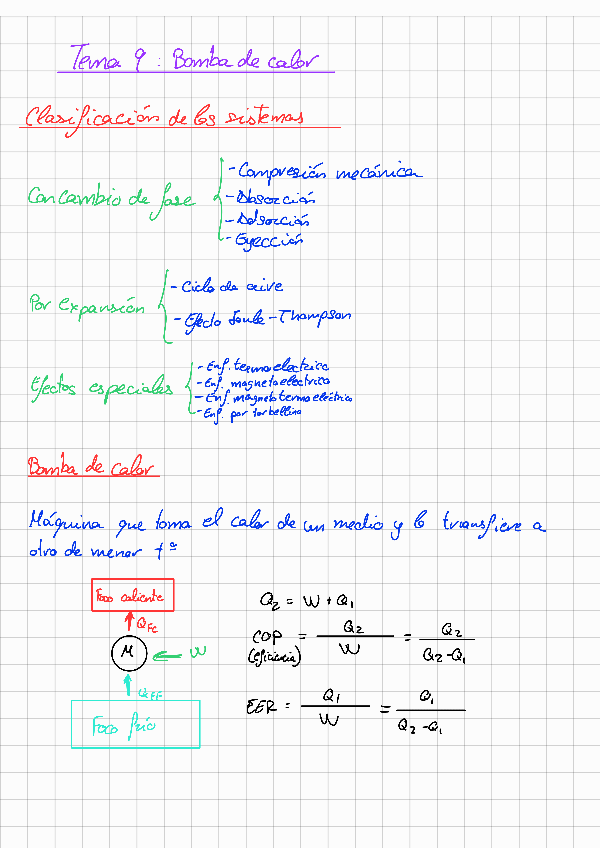 Tema 9: Bomba de calor
Clasificación de los sistemas
Con cambio de fase
- Compresión mecánica
- Absorción
- Adsorción
- Eyección
Por expansión
- Ciclo de aire
- Efecto Joule-Thompson
Efectos especiales
- Enf. termoelectrico
- Enf. magnetoelectrico
- Enf. magnetotermoeléctrico
- Enf. por torbellino
Bomba de calor
Máquina que toma el calor de un medio y lo transfiere a
otro de menor tª
Foco caliente
Q_FC
M
W
Q_FF
Foco frío
Q₂ = W + Q₁
COP (eficiencia) = Q₂ / W = Q₂ / (Q₂ - Q₁)
EER = Q₁ / W = Q₁ / (Q₂ - Q₁)